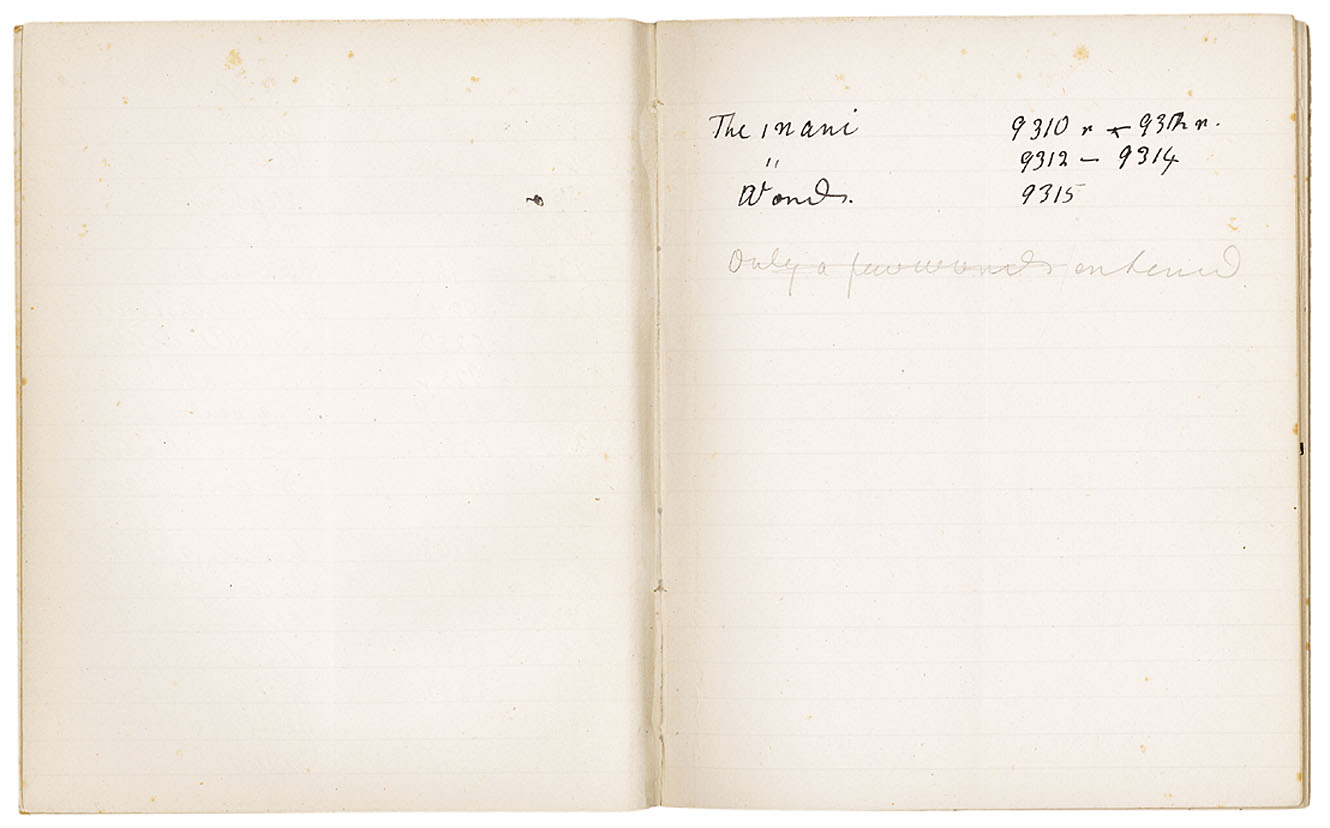 The mani 9310 r
" 9312 – 9314
Words. 9315
Only a few words entered